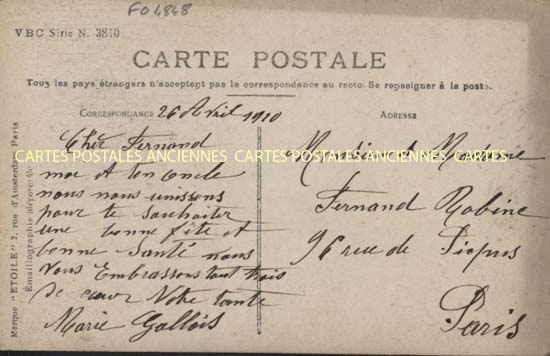 FO 4848
VBC Série N. 3810
CARTE POSTALE
Tous les pays étrangers n'acceptent pas la correspondance au recto. Se renseigner à la poste.
CORRESPONDANCE
26 Avril 1910
Cher Fernand
moi et ton oncle
nous nous unissons
pour te souhaiter
une bonne fête et
bonne Santé nous
Vous Embrassons tout trois
de cœur Notre tante
Marie Gallois
ADRESSE
Monsieur et Madame
Fernand Robine
96 rue de Picpus
Paris
Marque "ETOILE" 2, rue d'Amsterdam, Paris
Emaillographie déposée
CARTES POSTALES ANCIENNES CARTES POSTALES ANCIENNES CARTES